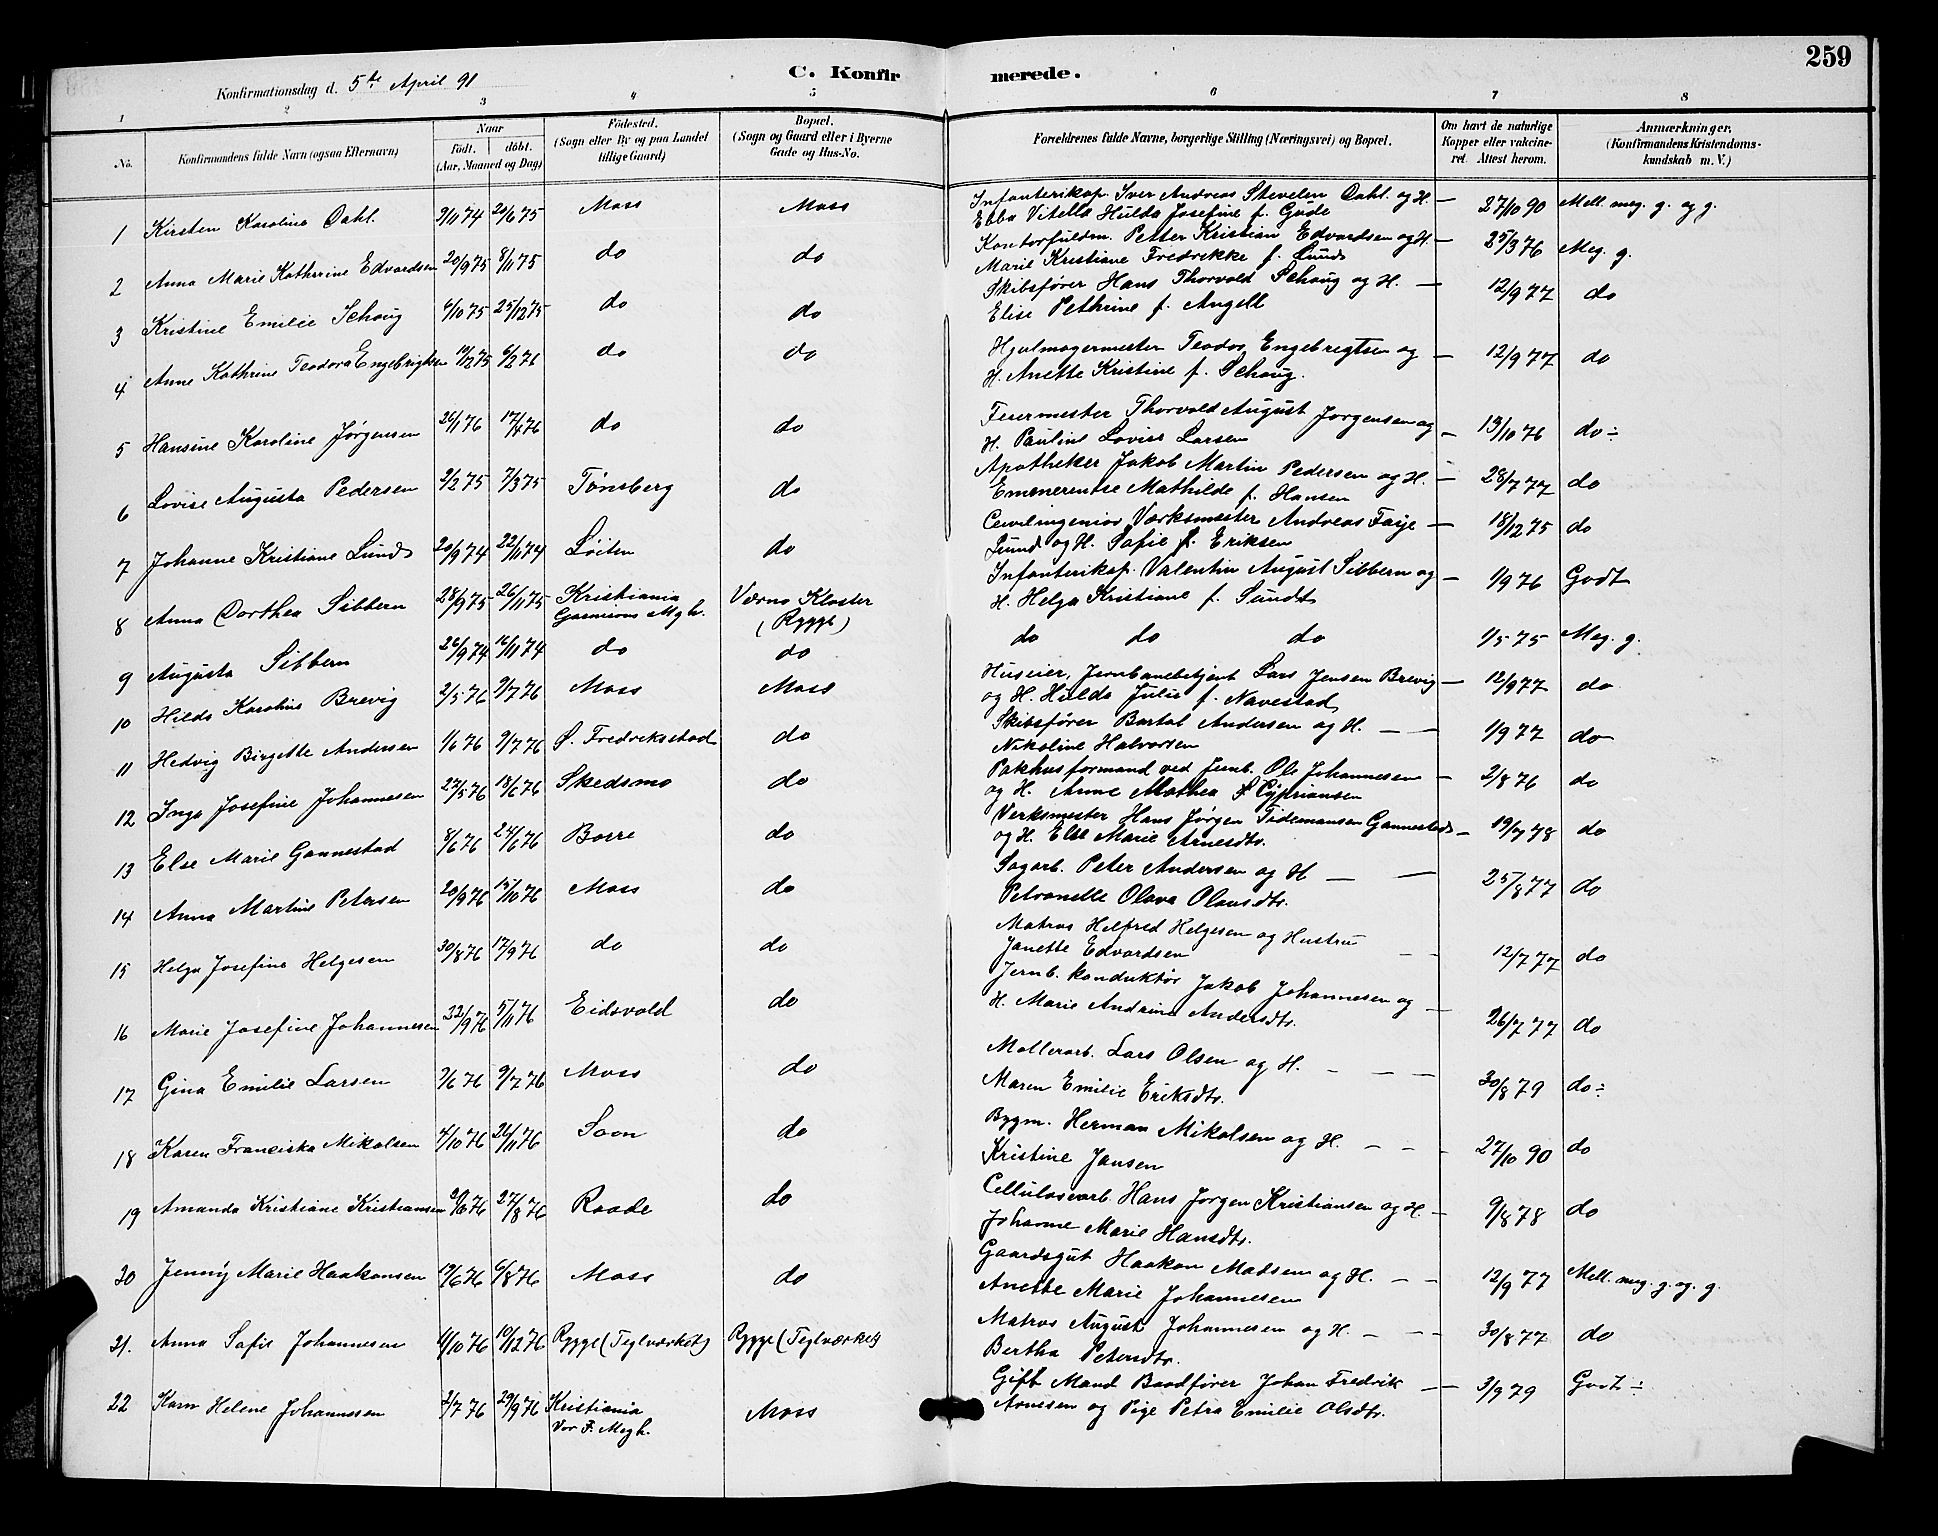 259
Konfirmationsdag d. 5te April 91
C. Konfirmerede.
1 2 3 4 5 6 7 8
No. Konfirmandens fulde Navn (ogsaa Efternavn) Naar Födt. döbt. (Aar, Maaned og Dag) Födested. (Sogn eller By og paa Landet tillige Gaard) Bopæl. (Sogn og Gaard eller i Byerne Gade og Hus-No. Forældrenes fulde Navne, borgerlige Stilling (Næringsvei) og Bopæl. Om havt de naturlige Kopper eller vakcineret. Attest herom. Anmærkninger. (Konfirmandens Kristendomskundskab m. V.)
1 Kirsten Karoline Dahl. 9/11 74 20/6 75 Moss Moss Infanterikap. Iver Andreas Stevelin Dahl. og H. — 27/10 90 Mell. meg. g. og g.
Ebba Vitella Hulda Josefine f. Gude
2 Anna Marie Kathrine Edvardsen 20/9 75 8/11 75 do do Kontorfuldm. Petter Kristian Edvardsen og H — 25/3 76 Meg. g.
Marie Kristiane Fredrikke f. Lund
3 Kristine Emilie Schoug 6/10 75 25/12 75 do do Skibsfører Hans Thorvald Schoug og H. — 12/9 77 do
Elise Pethrine f. Angell
4 Anne Kathrine Teodora Engebrigtsen 19/12 75 6/2 76 do do Hjulmagermester Teodor Engebregtsen og — 12/9 77 do
H. Anette Kristine f. Schoug.
5 Hansine Karoline Jørgensen 26/1 76 17/4 76 do do Feiermester Thorvald August Jørgensen og — 13/10 76 do ÷
H. Pauline Lovise Larsen
6 Lovise Augusta Pedersen 2/2 75 7/3 75 Tønsberg do Apotheker Jakob Martin Pedersen og H. — 28/7 77 do
Emenerentse Mathilde f. Hansen
7 Johanne Kristiane Lund 20/9 74 22/11 74 Løiten do Civilingeniør Værksmester Andreas Faye — 18/12 75 do
Lund og H. Sofie f. Eriksen
8 Anna Dorthea Sibbern 28/9 75 26/11 75 Kristiania Garnisons Mgh. Værne Kloster (Rygge) Infanterikap. Valentin August Sibbern og — 1/9 76 Godt
H. Helga Kristiane f. Sundt
9 Augusta Sibbern 26/9 74 16/11 74 do do do do do 1/5 75 Meg. g.
10 Hilda Karoline Brevig 2/5 76 9/7 76 Moss Moss Huseier, Jernbanebetjent Lars Jensen Brevig — 12/9 77 do
og H. Hulda Julie f. Navestad
11 Hedvig Birgette Andersen 1/6 76 9/7 76 S. Fredriksstad do Skibsfører Bartol Andersen og H. — — 1/9 77 do
Nikoline Halvorsen
12 Inga Josefine Johannesen 27/5 76 18/6 76 Skedsmo do Pakhusformand ved Jernb. Ole Johannesen — 2/8 76 do
og H. Anne Mathea f. Cypriansen
13 Else Marie Gannestad 8/6 76 24/6 76 Borre do Verksmester Hans Jørgen Tidemansen Gannestad — 19/7 78 do
og H. Else Marie Arnesdtr.
14 Anna Martine Petersen 20/9 76 15/10 76 Moss do Sagarb. Peter Andersen og H — — 25/8 77 do
Petronelle Olava Olausdtr.
15 Helga Josefine Helgesen 30/8 76 17/9 76 do do Matros Helfred Helgesen og Hustru
Janette Edvardsen — — 12/7 77 do
16 Marie Josefine Johannesen 9 76 5/11 76 Eidsvold do Jernb. konduktør Jakob Johannesen og — 26/7 77 do
H. Marie Andrine Andersdtr.
17 Gina Emilie Larsen 2/6 76 9/7 76 Moss do Møllerarb. Lars Olsen og H. — — — 30/8 79 do ÷
Maren Emilie Eriksdtr.
18 Karen Franciska Mikalsen 4/10 76 26/11 76 Soon do Bygm. Herman Mikalsen og H. — — — 27/10 90 do
Kristine Jansen
19 Amanda Kristiane Kristiansen 76 27/8 76 Raade do Cellulosearb. Hans Jørgen Kristiansen og H. — 9/8 78 do
Johanne Marie Hansdtr.
20 Jenny Marie Haakonsen 17/6 76 6/8 76 Moss do Gaardsgut Haakon Madsen og H. — — 12/9 77 Mell. meg. g. og. g.
Anette Marie Johannesen
21. Anna Sofie Johannesen 4/10 76 19/12 76 Rygge (Teglværket) Rygge (Teglværket) Matros August Johannesen og H. — — — 30/8 77 do
Bertha Petersdtr.
22 Karn Helene Johannesen 2/7 76 29/9 76 Kristiania Vor F. Mgh. Moss Gift Mand Baadfører Johan Fredrik — 3/9 79 Godt ÷
Arnesen og Pige Petra Emilie Olsdtr.